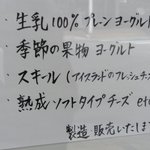 ・生乳100% プレーン ヨーグルト
・季節の果物 ヨーグルト
・スキール (アイスランドのフレッシュチーズ
・熟成ソフトタイプチーズ etc
製造・販売いたしま